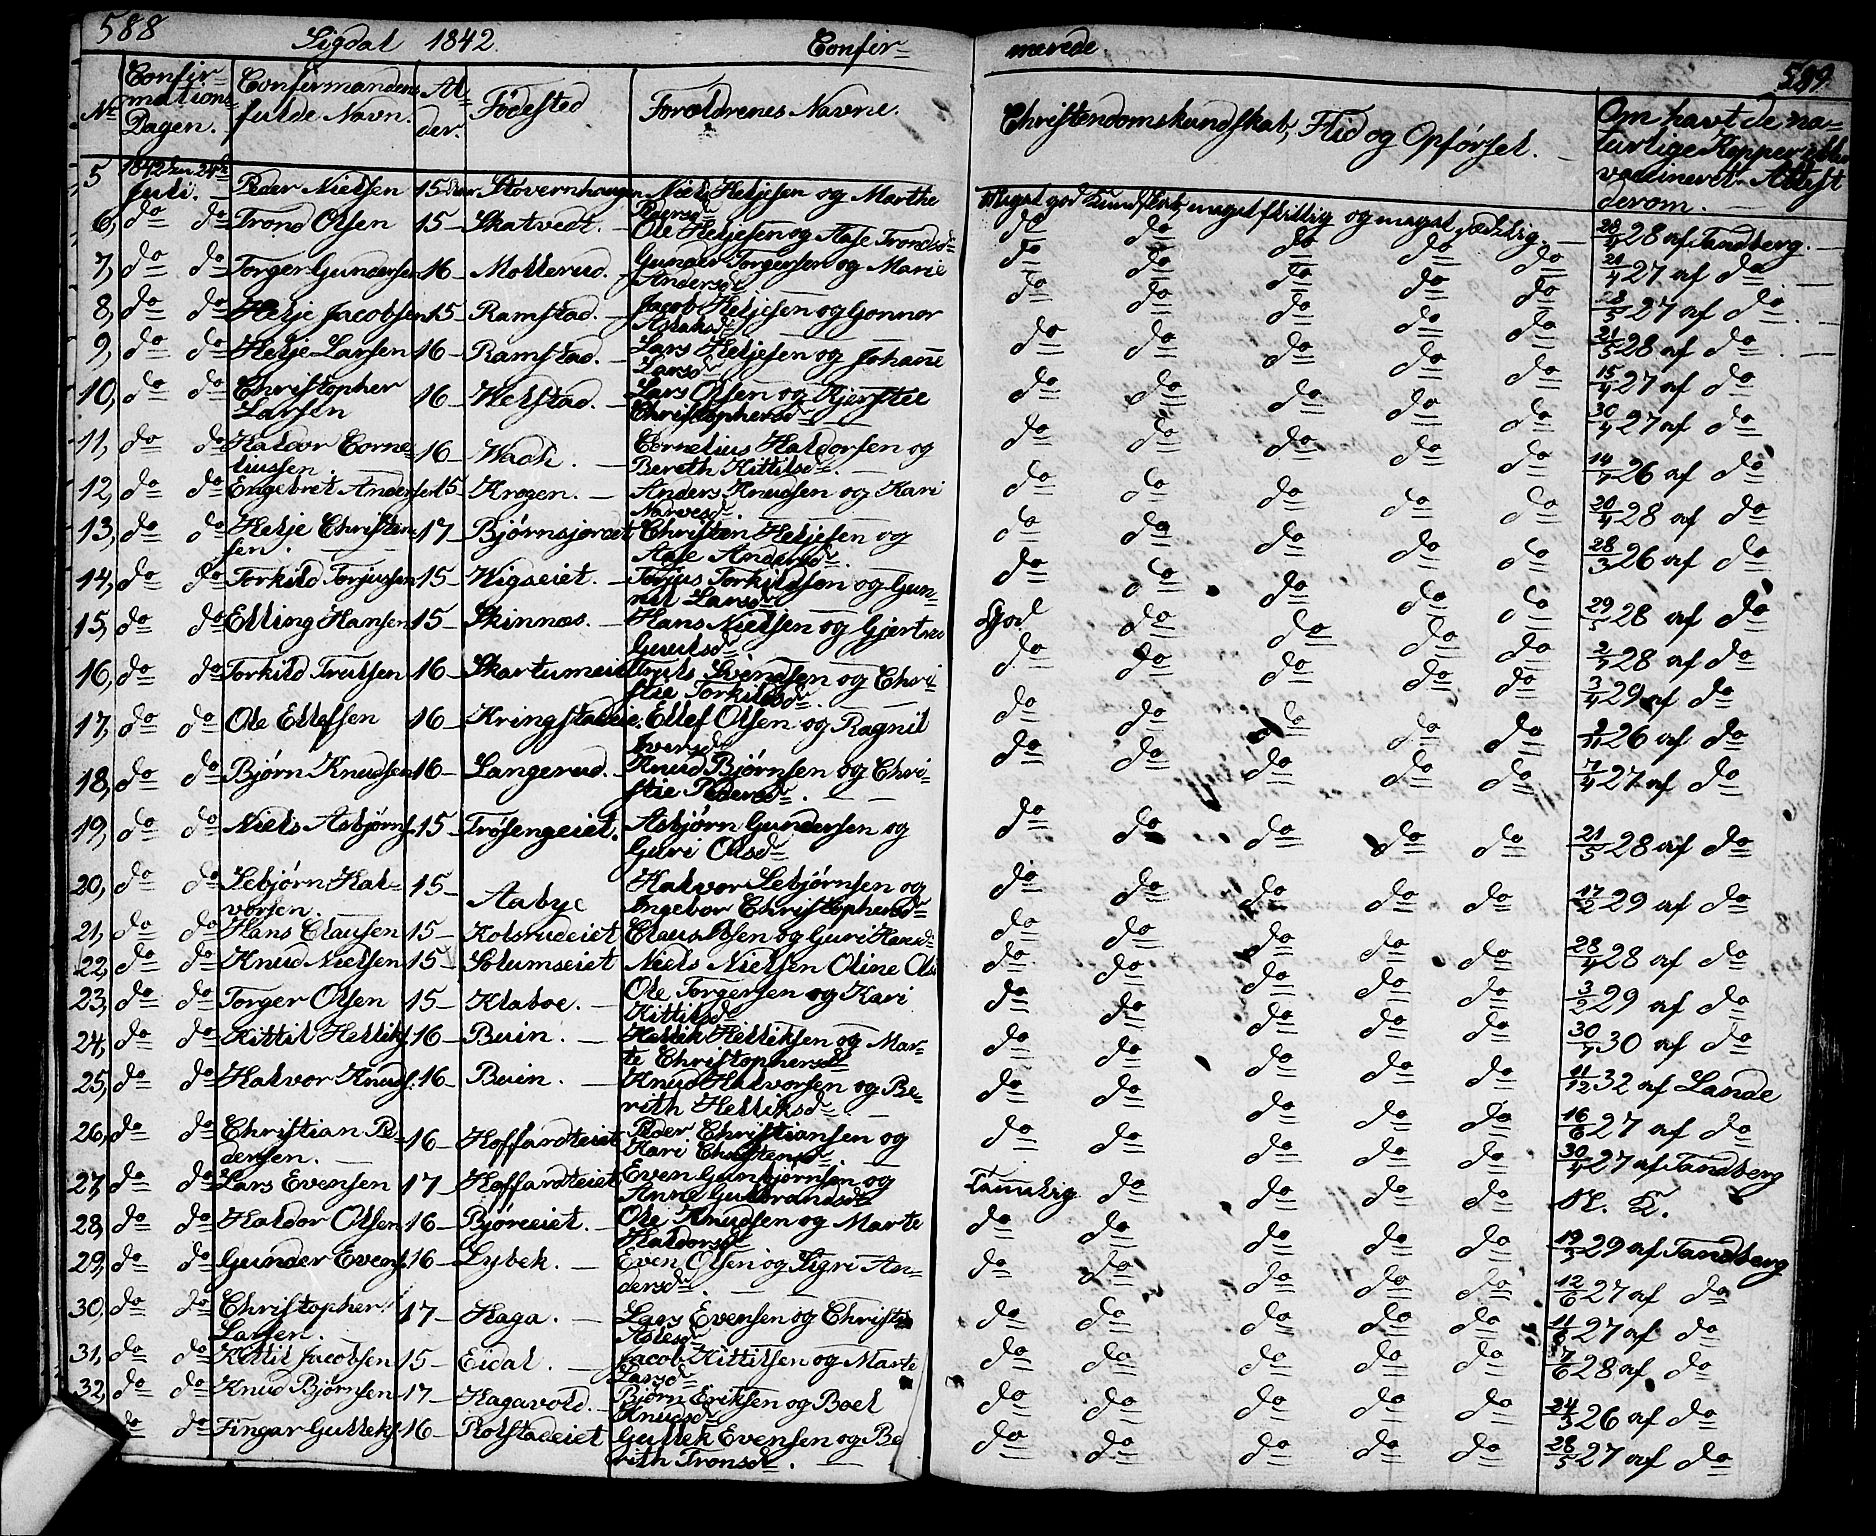 588 Sigdal 1842. Confir-
merede 589.
Nr Confirmations Dagen. Confirmandens fulde Navn. Alder. Fødested Forældrenes Navne. Christendomskundskab, Flid og Opførsel. Om havt de naturlige Kopper eller vaccineret. Attest derom.
5 1842 den 24de Juli. Peder Nielsen 15 Stovernhaugen Niels Heljesen og Marthe Pedersdr Meget god Kundskab, meget flittig og meget sædelig. 28 af Tandberg.
6, do do Trond Olsen 15 Skatvedt. Ole Heljesen og Aase Trondsdr do do do do do 27 af do
7, do do Torger Gundersen 16 Mollerud. Gunder Torgersen og Marie Andersdr do do do do do 27 af do
8, do do Helje Jacobsen 15 Ramstad. Jacob Heljesen og Gonnor Aslaksdr do do do do do 21/5 28 af do
9, do do Helje Larsen 16 Ramstad. Lars Heljesen og Johanne Larsdr do do do do do 15/4 27 af do
10, do do Christopher Larsen 16 Helstad. Lars Olsen og Kjerstie Christophersdr do do do do do 30/4 27 af do
11, do do Haldor Corneliussen 16 Wadh. Cornelius Haldorsen og Bereth Kittilsdr. do do do do do 14/4 26 af do
12, do do Engebret Andersen 15 Krogen. Anders Knudsen og Kari Narvesdr. do do do do do 20/4 28 af do
13, do do Helje Christensen. 17 Bjørnsjordet Christen Heljesen og Aase Andersdr. do do do do do 28/3 26 af do
14, do do Torkild Torjussen 15 Wigseiet. Torjus Torkildsen og Gunnil Larsdr do do do do do 29/5 28 af do
15, do do Elling Hansen 15 Skinnes. Hans Nielsen og Gjertrud God do do do do 28 af do
16, do do Torkild Trulsen 16 Skartumeiet Svendsen og Christie Torkildsdr. do do do do do 3/4 29 af do
17, do do Ole Ellefsen 16 Kringstadeie. Ellef Olsen og Ragnil Iversdr do do do do do 26 af do
18, do do Bjørn Knudsen 16 Langerud. Knud Bjørnsen og Christie Pedersdr. do do do do do 7/4 27 af do
19, do do Niels Asbjørns. 15 Frøsengeiet. Asbjørn Gundersen og Guri Olsdr do do do do do 21/5 28 af do
20, do do Lebjørn Halvorsen. 15 Aabye Halvor Lebjørnsen og Ingebor Christophersdr do do do do do 17/2 29 af do
21, do do Hans Clausen 15 Kolsrudeiet Claus Olsen og Guri Hansdr do do do do do 28/4 28 af do
22, do do Knud Nielsen 15 Solumseiet Niels Nielsen Oline Ols do do do do do 3/2 29 af do
23, do do Torger Olsen 15 Klaboe. Ole Torgersen og Kari Kittilsdr do do do do do 30 af do
24, do do Kittil Helliks. 16 Buin. Hellik Helliksen og Marte Christophersdr do do do do do 11/12 32 af Lande
25, do do Halvor Knuds. 16 Buin. Knud Halvorsen og Berith Helliksdr do do do do do 16/6 27 af do
26, do do Christian Pedersen. 16 Hoffardteiet Peder Christiansen og Kari Christensdr. do do do do do 30/4 27 af Tandberg
27, do do Lars Evensen 17 Hoffardteiet Even Gunbjørnsen og Anne Gulbrandsdr Taalelig do do do do N. K.
28, do do Haldor Olsen 16 Bjøreeiet. Ole Knudsen og Marte Haldorsdr do do do do do 29 af Tandberg
29, do do Gunder Evens. 16 Lybek. Even Olsen og Sigri Andersdr. do do do do do 12/6 27 af do
30, do do Christopher Larsen. 17 Haga. Lars Evensen og Christi Aslesdr do do do do do 27 af do
31, do do Kittil Jacobsen 15 Eidal. Jacob Kittilsen og Marte Larsdr do do do do do 7/6 28 af do
32, do do Knud Bjørnsen 17 Hagavold. Bjørn Eriksen og Boel Knudsdr do do do do do 24/3 26 af do
do do Fingar Gulleks. 16 Rolstadeiet Gullek Evensen og Berith Tronsdr. do do do do do 28/5 27 af do